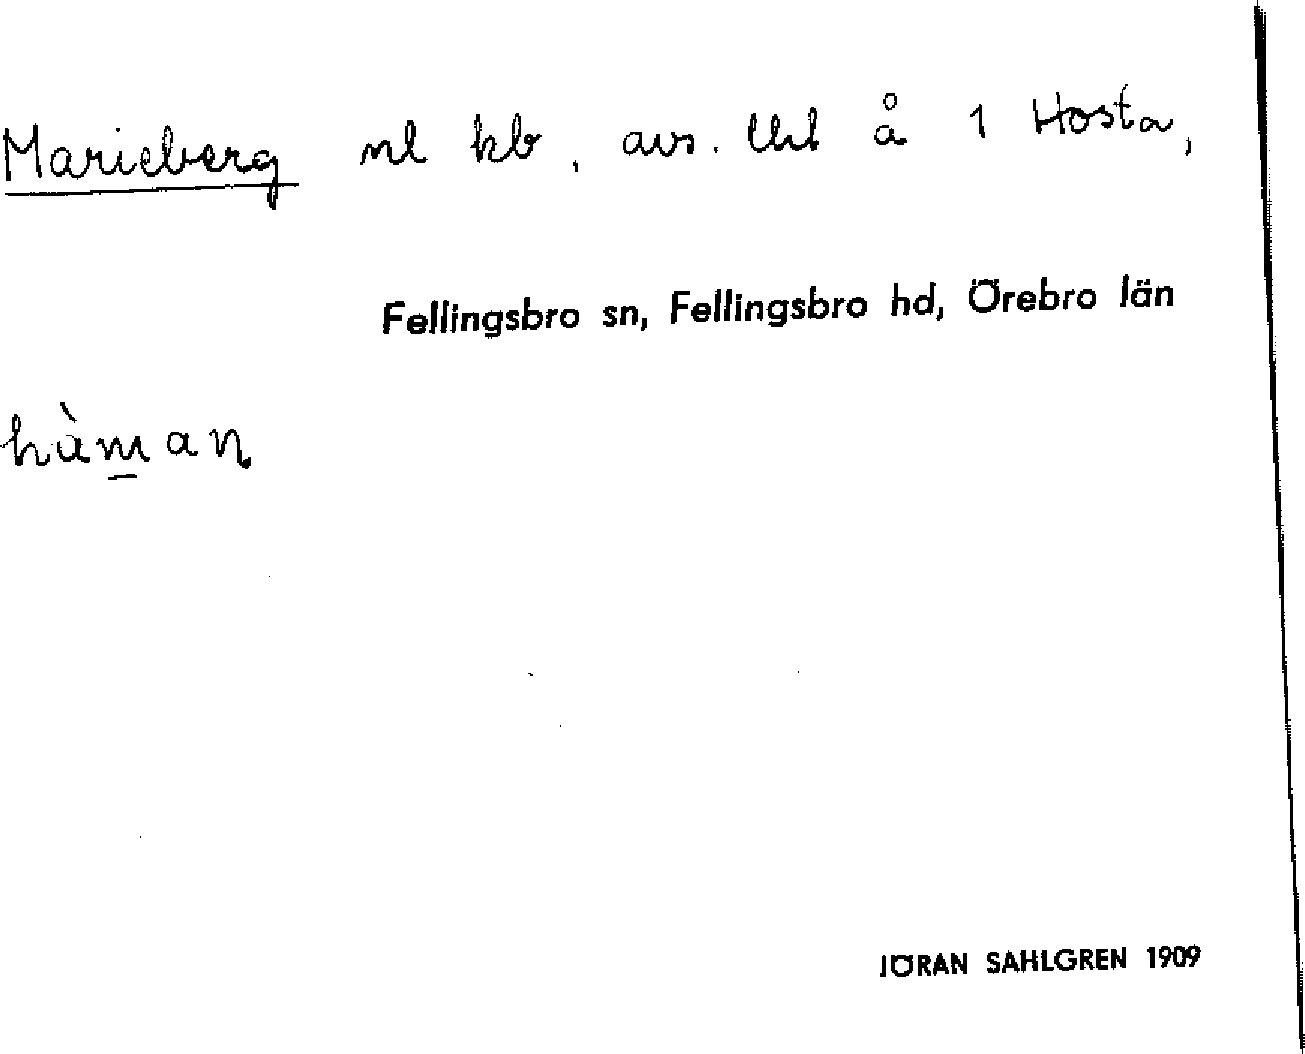 Marieberg nl kb, avs. lht å 1 Hosta,
Fellingsbro sn, Fellingsbro hd, Örebro län
hàman
JÖRAN SAHLGREN 1909